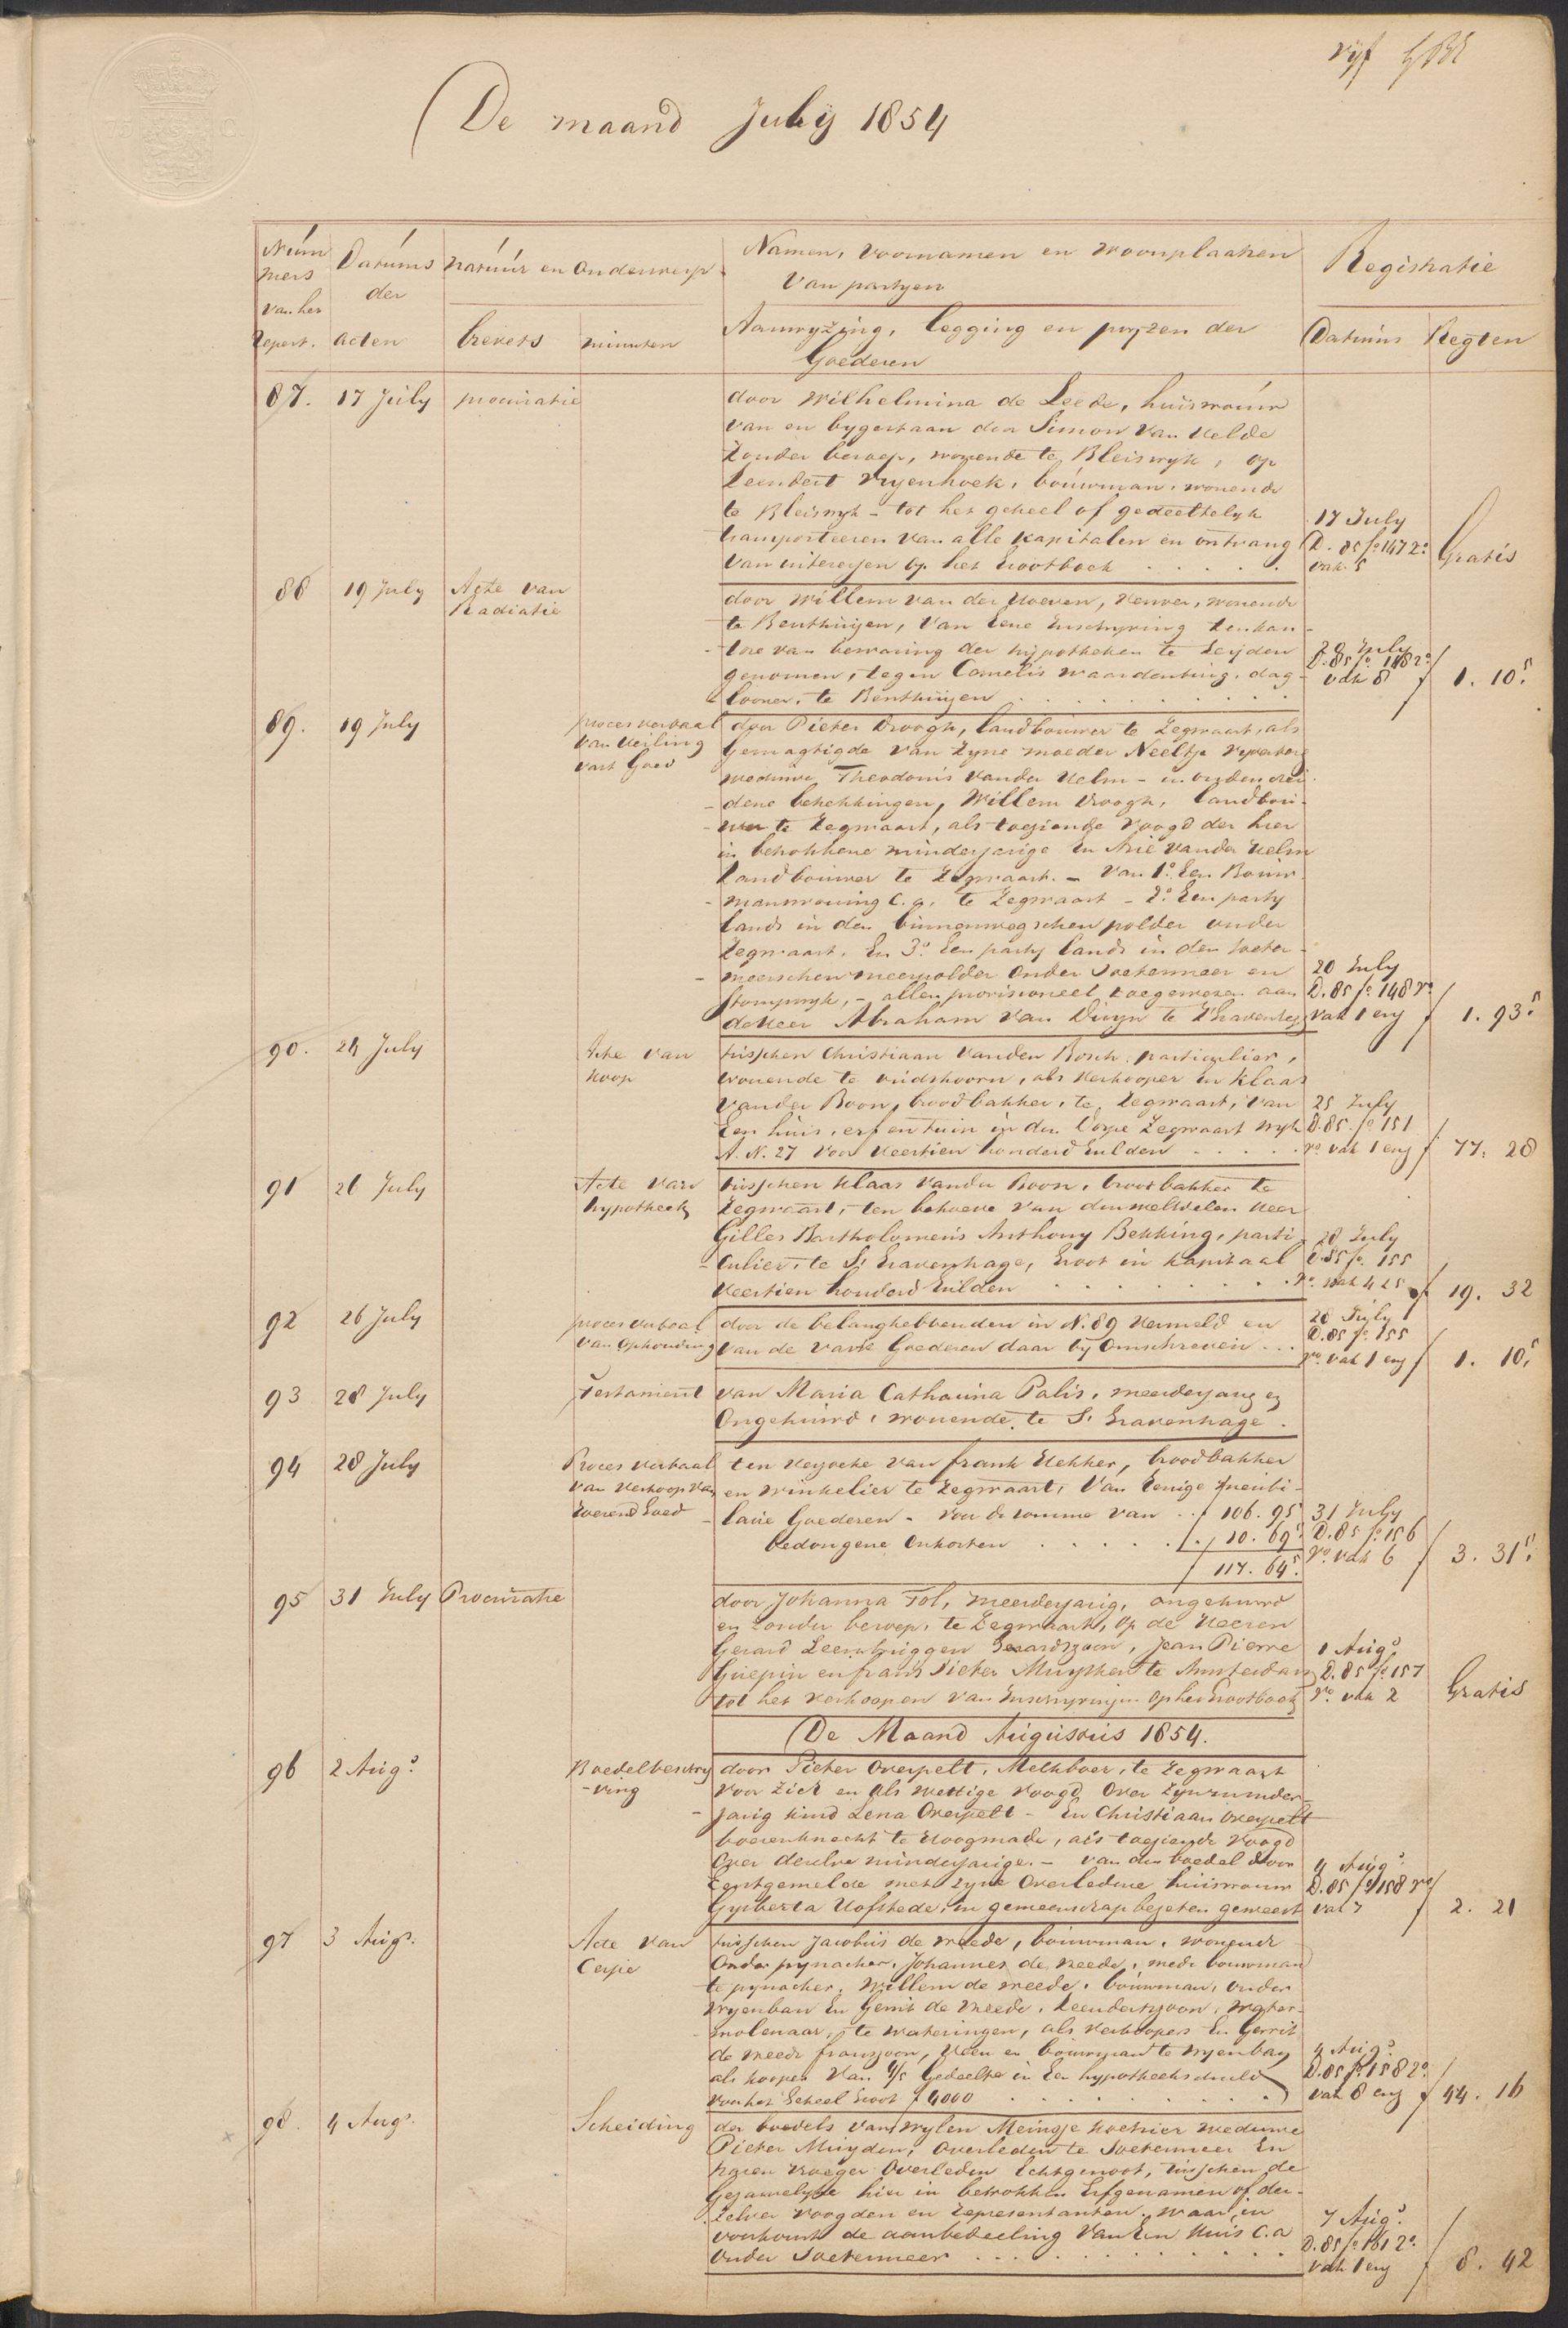 vijf
De maand July 1854
Num
mers
van het
Repert.
Datums
der
acten
natuur en onderwerp
brevets
minuten
Namen, voornamen en woonplaatsen
van partyen
Aanwyzing, legging en pryzen der
Goederen
Registratie
Datums
Regten
87. 17 July procuratie
door Wilhelmina de Leede, huisvrouw
van en bygestaan door Simon van Velde
zonder beroep, wonende te Bleiswyk, op
Leendert Vryenhoek, bouwman, wonende
te Bleiswyk - tot het geheel of gedeeltelyk
transporteeren van alle kapitalen en ontvang
van interessen op het Grootboek . . . . .
17 July
D. 85 fo 147 2o
vak 5
Gratis
88 19 July Acte van
Radiatie
door Willem van der Hoeven, wonende
te Benthuizen, van eene inschryving ten kan-
tore van bewaring der hypotheken te Leyden
genomen, tegen Cornelis Waardenburg, dag-
looner, te Benthuizen . . . . . . . .
20 July
D. 85 fo 148 ro
vak 8 f 1. 10 5
89. 19 July
proces verbaal
van veiling
vast Goed
door Pieter Droogh, landbouwer te Zegwaart, als
Gemagtigde van zyne moeder Neeltje
weduwe Theodorus vander Helm - in onderschei-
dene betrekkingen, Willem Droogh, landbou-
wer te Zegwaart, als toeziende Voogd der hier
in betrokkene minderjarige En Arie vander Helm
landbouwer te Zegwaart. - Van 1o. Een Bouw-
manswoning c.a. te Zegwaart - 2o. Een party
lands in den binnenwegschen polder onder
Zegwaart. En 3o. Een party lands in den Soeter-
meerschen meerpolder onder Soetermeer en
Stompwyk, - allen provisioneel toegewezen aan
de Heer Abraham van Duyn te 's Gravenhage
20 July
D. 85 fo 148 ro
vak 1 env f 1. 93 5
90. 24 July
Acte van
Koop
tusschen Christiaan vanden Bosch, particulier,
wonende te Oudshoorn, als verkooper en Klaas
vander Boon, broodbakker, te Zegwaart, van
Een huis, erf en tuin in den Dorpe Zegwaart wyk
A. N. 27 voor Veertien honderd Gulden . . . . .
25 July
D. 85. fo 151
ro vak 1 env f 77. 28
91 26 July
Acte van
hypotheek
tusschen Klaas vander Boon, broodbakker te
Zegwaart, ten behoeve van den welEdelen Heer
Gilles Bartholomeus Anthony Bekking, parti-
culier, te S' Gravenhage, Groot in kapitaal
Veertien honderd Gulden . . . . . . . . .
28 July
D. 85 fo. 155
ro. vak 4 25 f 19. 32
92 26 July
proces verbaal
van ophouding
door de belanghebbenden in N. 89 vermeld en
van de vaste Goederen daar by omschreven . . .
28 July
D. 85 fo 155
ro. vak 1 env f 1. 10 5
93 28 July
Testament
van Maria Catharina Palis, meerderjarig en
Ongehuwd, wonende te S' Gravenhage.
94 28 July
Proces verbaal
van Verkoop van
Roerend Goed
ten verzoeke van Frank Hekker, broodbakker
en winkelier te Zegwaart, van Eenige meubi-
laire Goederen - voor de somme van . . f 106. 95
bedongene onkosten . . . . . . f 10. 69 5
f 117. 64 5.
31 July
D. 85 fo 156
ro. vak 6 f 3. 31 5
95 31 July Procuratie
door Johanna Tol, meerderjarig, ongehuwd
en zonder beroep, te Zegwaart, op de Heeren
Gerard Leembruggen Gerardszoon, Jean Pierre
Guepin en Frans Pieter Muysken te Amsterdam
tot het verkoopen van Inschryvingen op het Grootboek
1 Augs
D. 85 fo 157
ro. vak 2
Gratis
De Maand Augustus 1854.
96 2 Augs
Boedelbeschry
-ving
door Pieter Overpelt, Melkboer, te Zegwaart
voor zich en als wettige voogd over zyn minder-
jarig kind Lena Overpelt - En Christiaan Overpelt
boerenknecht te Hoogmade, als toeziende Voogd
over dezelve minderjarige. - van den boedel door
Eerstgemelde met zyne overledene huisvrouw
Gysberta Hofstede, in gemeenschap bezeten geweest
4 Augs
D. 85 fo 158 ro
vak 7 f 2. 21
97 3 Augs.
Acte van
Cessie
tusschen Jacobus de Vreede, bouwman, wonende
onder Pynacker, Johannes de Vreede, mede bouwman
te Pynacker, Willem de Vreede, bouwman, onder
Vryenban En Gerrit de Vreede, Leendertszoon, water-
molenaar, te Wateringen, als verkoopers En Gerrit
de Vreede Franszoon, Veen en bouwman te Vryenban
als kooper van 4/5 Gedeelte in Een hypotheekschuld
voor het Geheel Groot f 4000 . . . . . . . .
4 Augs
D. 85 fo 158 2o
vak 8 env f 44. 16
98. 4 Augs.
Scheiding
der boedels van wylen Meinsje weduwe
Pieter Muyden, overleden te Soetermeer En
haren vroeger Overleden Echtgenoot, tusschen de
Gezamelyke hier in betrokken Erfgenamen of der-
zelver voogden en representanten, waar in
voorkomt de aanbedeeling van Een Huis c.a
Onder Soetermeer . . . . . . . . . .
7 Augs
D. 85 fo 161 2o
vak 1 env f 8. 42